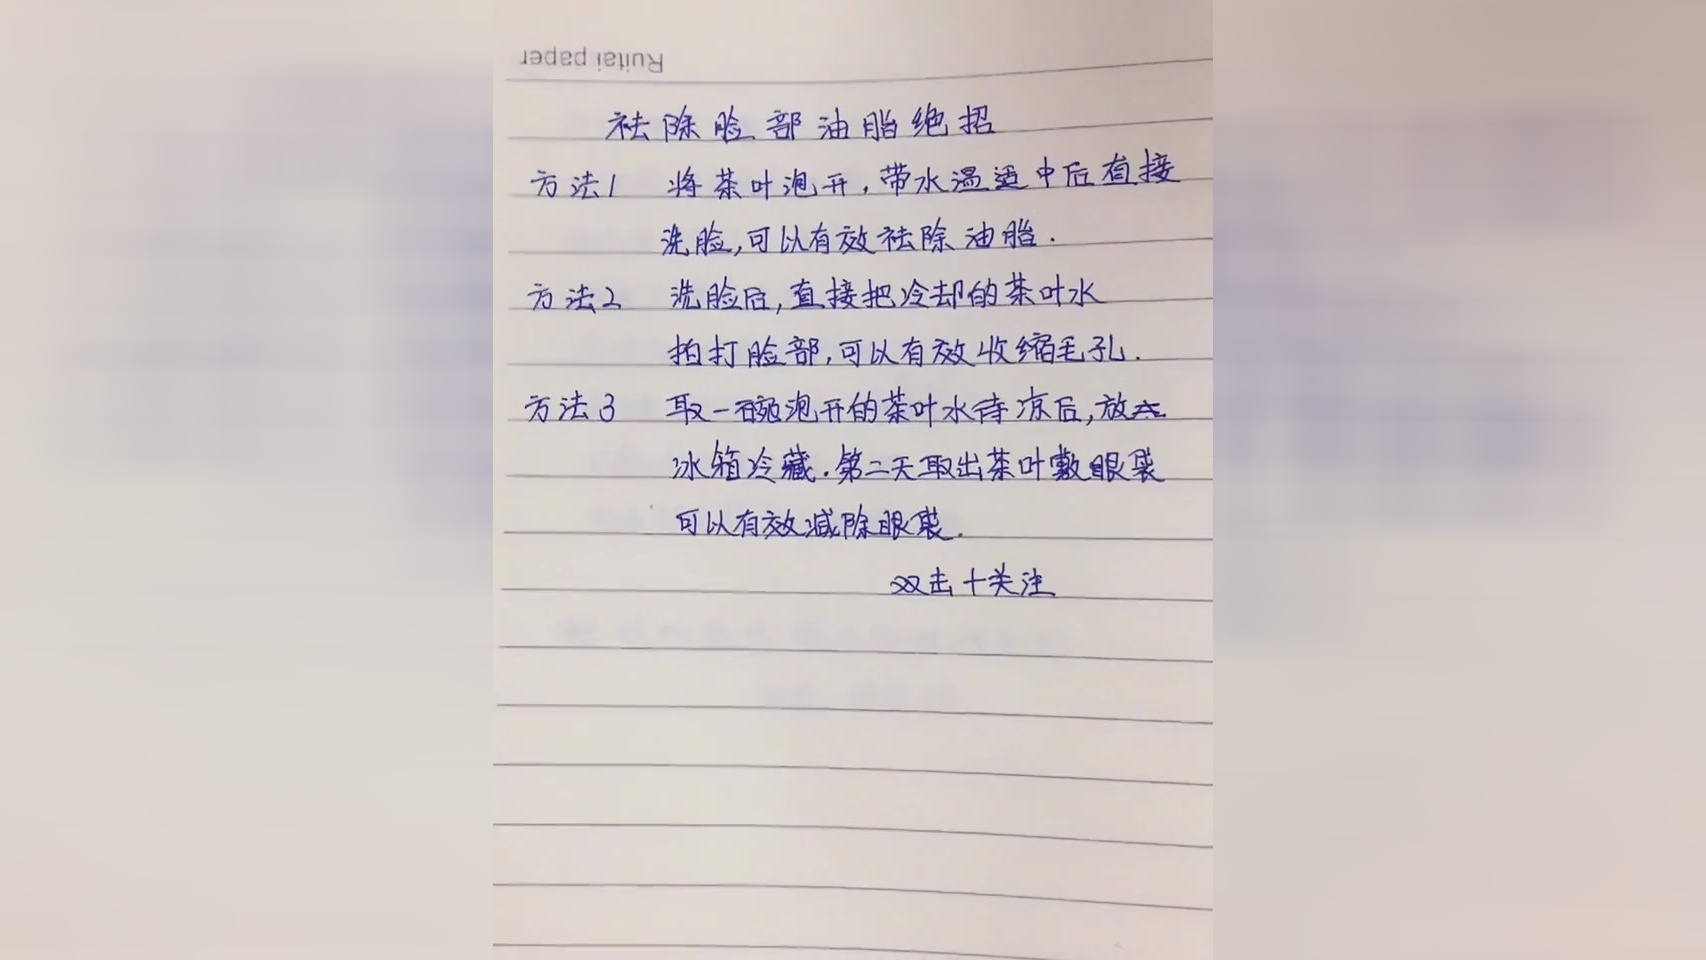 Ruitai paper
祛除脸部油脂绝招
方法1 将茶叶泡开,带水温适中后直接
洗脸,可以有效祛除油脂.
方法2 洗脸后,直接把冷却的茶叶水
拍打脸部,可以有效收缩毛孔.
方法3 取一碗泡开的茶叶水待凉后,放在
冰箱冷藏.第二天取出茶叶敷眼袋
可以有效减除眼袋.
双击+关注